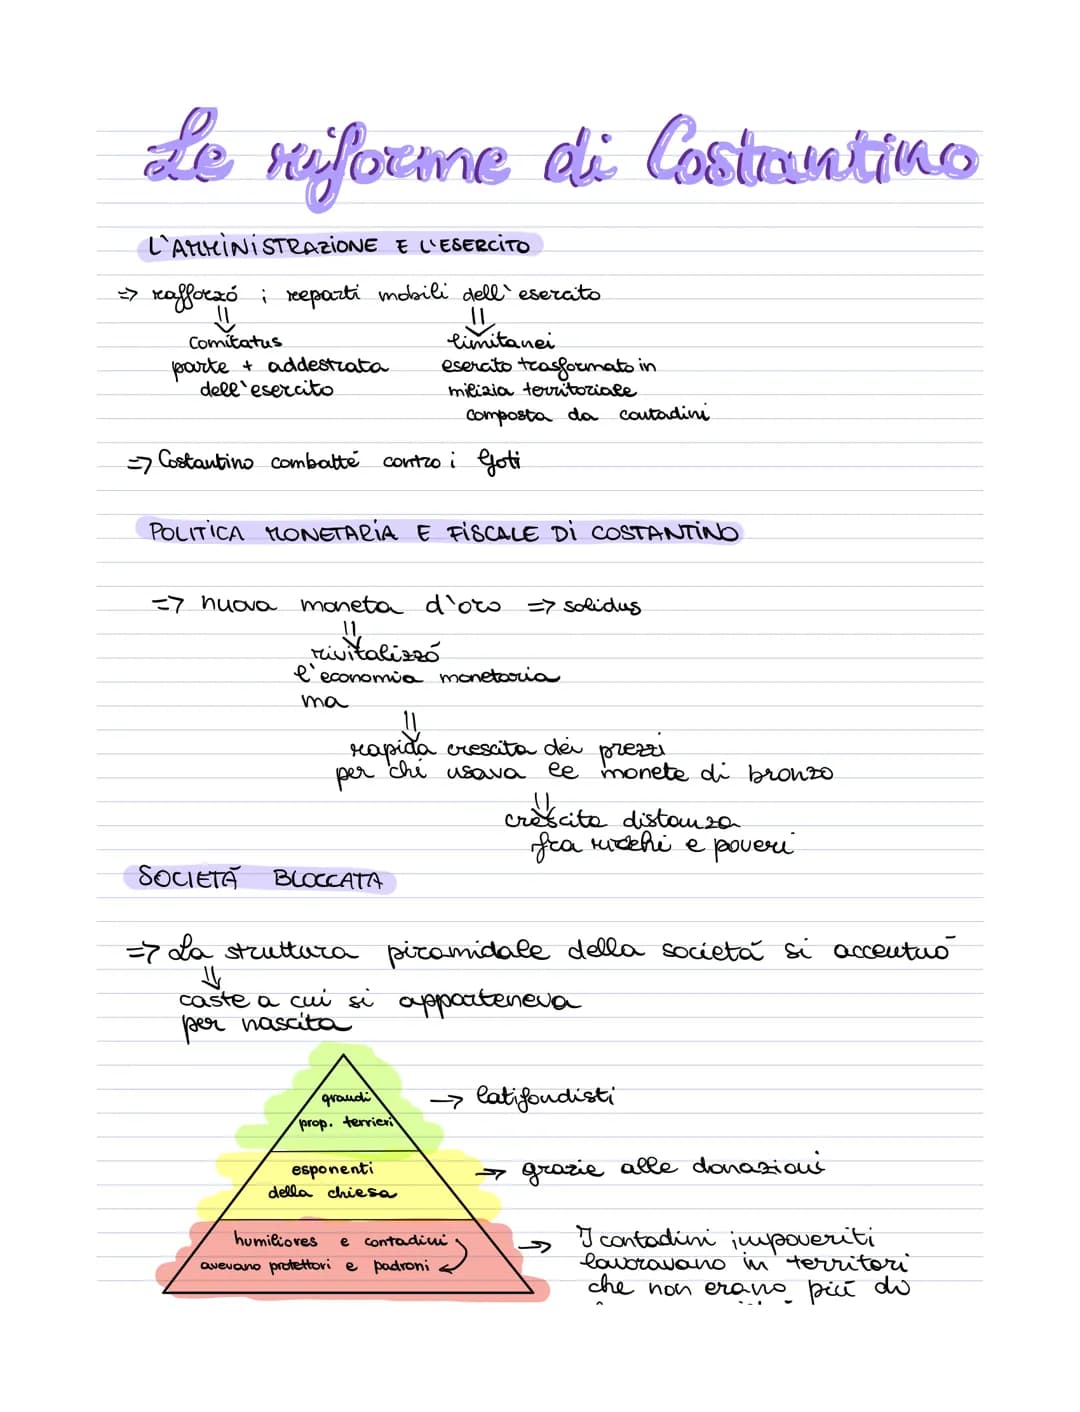 Le riforme di Costantino
L'AMMINISTRAZIONE E L'ESERCITO
=> rafforzó i reparti mobili dell'esercito
Comitatus
parte + addestrata
dell'esercito
limitanei
esercito trasformato in
milizia territoriale
composta da contadini
=> Costantino combatté contro i Goti
POLITICA MONETARIA E FISCALE DI COSTANTINO
=> nuova moneta d'oro => solidus
rivitalizzó
l'economia monetaria
ma
rapida crescita dei prezzi
per chi usava le monete di bronzo
crescita distanza
fra ricchi e poveri
SOCIETÁ BLOCCATA
=> La struttura piramidale della societá si accentuó
caste a cui si apparteneva
per nascita
grandi
prop. terrieri
→ latifondisti
esponenti
della chiesa
→ grazie alle donazioni
humiliores e contadini
avevano protettori e padroni
→ I contadini impoveriti
lavoravano in territori
che non erano piú di